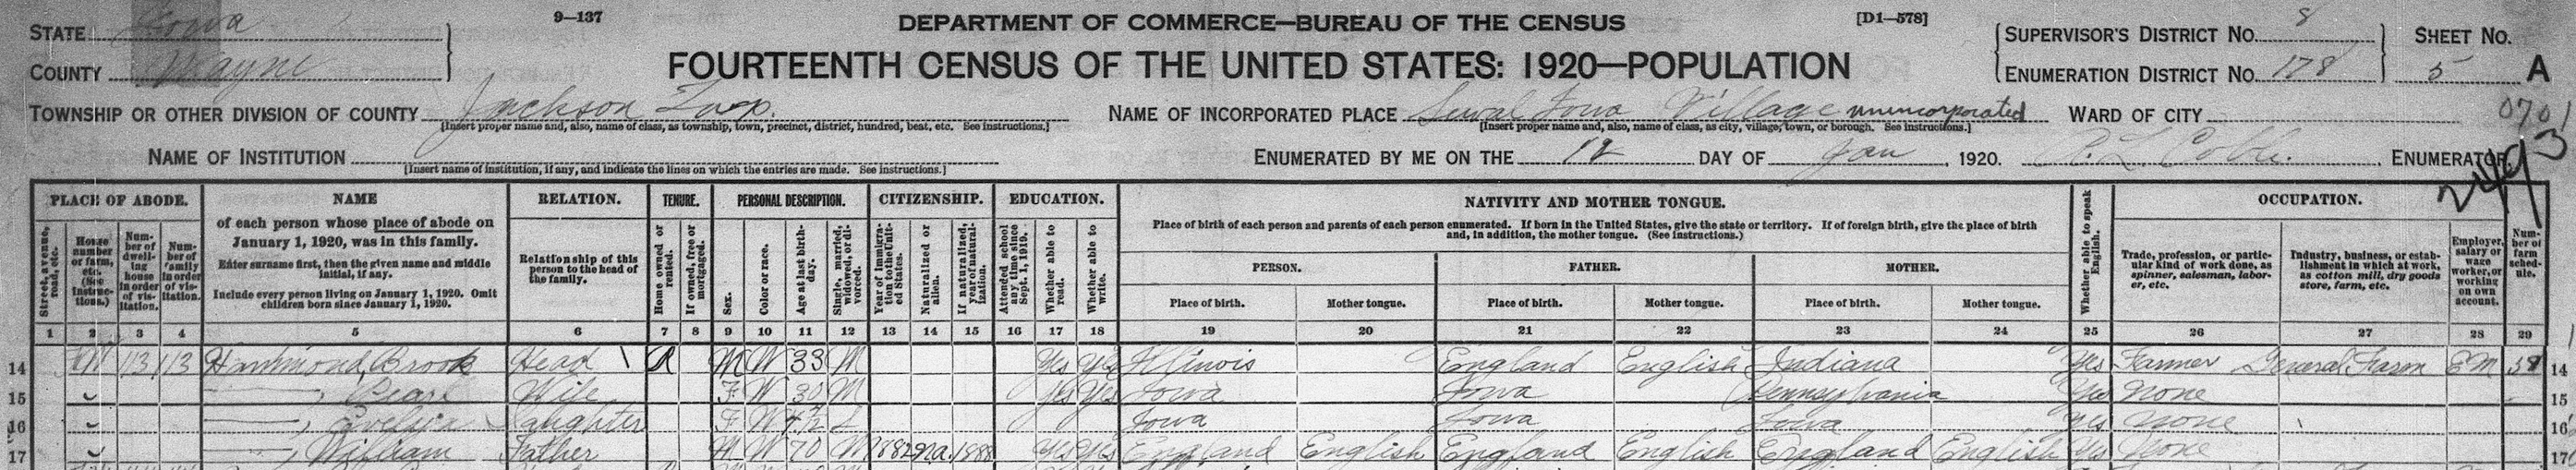 9—137
DEPARTMENT OF COMMERCE—BUREAU OF THE CENSUS
[D1—578]
STATE Iowa
COUNTY Wayne
FOURTEENTH CENSUS OF THE UNITED STATES: 1920—POPULATION
SUPERVISOR'S DISTRICT No. 8
ENUMERATION DISTRICT No. 178
SHEET No.
5 A
TOWNSHIP OR OTHER DIVISION OF COUNTY Jackson Twp.
[Insert proper name and, also, name of class, as township, town, precinct, district, hundred, beat, etc. See instructions.]
NAME OF INCORPORATED PLACE Sewal Iowa Village unincorporated
[Insert proper name and, also, name of class, as city, village, town, or borough. See instructions.]
WARD OF CITY
0701
NAME OF INSTITUTION
[Insert name of institution, if any, and indicate the lines on which the entries are made. See instructions.]
ENUMERATED BY ME ON THE 12 DAY OF Jan, 1920. Coble. ENUMERATOR.
2493
PLACE OF ABODE.
Street, avenue, road, etc.
House number or farm, etc. (See instructions.)
Number of dwelling house in order of visitation.
Number of family in order of visitation.
NAME
of each person whose place of abode on
January 1, 1920, was in this family.
Enter surname first, then the given name and middle
initial, if any.
Include every person living on January 1, 1920. Omit
children born since January 1, 1920.
RELATION.
Relationship of this
person to the head of
the family.
TENURE.
Home owned or rented.
If owned, free or mortgaged.
PERSONAL DESCRIPTION.
Sex.
Color or race.
Age at last birthday.
Single, married, widowed, or divorced.
CITIZENSHIP.
Year of immigration to the United States.
Naturalized or alien.
If naturalized, year of naturalization.
EDUCATION.
Attended school any time since Sept. 1, 1919.
Whether able to read.
Whether able to write.
NATIVITY AND MOTHER TONGUE.
Place of birth of each person and parents of each person enumerated. If born in the United States, give the state or territory. If of foreign birth, give the place of birth
and, in addition, the mother tongue. (See instructions.)
PERSON.
Place of birth.
Mother tongue.
FATHER.
Place of birth.
Mother tongue.
MOTHER.
Place of birth.
Mother tongue.
Whether able to speak English.
OCCUPATION.
Trade, profession, or particular kind of work done, as spinner, salesman, laborer, etc.
Industry, business, or establishment in which at work, as cotton mill, dry goods store, farm, etc.
Employer, salary or wage worker, or working on own account.
Number of farm schedule.
1 2 3 4 5 6 7 8 9 10 11 12 13 14 15 16 17 18 19 20 21 22 23 24 25 26 27 28 29
14 FM 13 13 Hammond, Brook Head R M W 33 M Yes Yes Illinois England English Indiana Yes Farmer General Farm EM 38 14
15 —, Pearl Wife F W 30 M Yes Yes Iowa Iowa Pennsylvania Yes None 15
16 —, Evelyn Daughter F W S Iowa Iowa Iowa Yes None 16
17 —, William Father M W 70 M 1882 na. 1888 Yes Yes England English England English England English Yes None 17